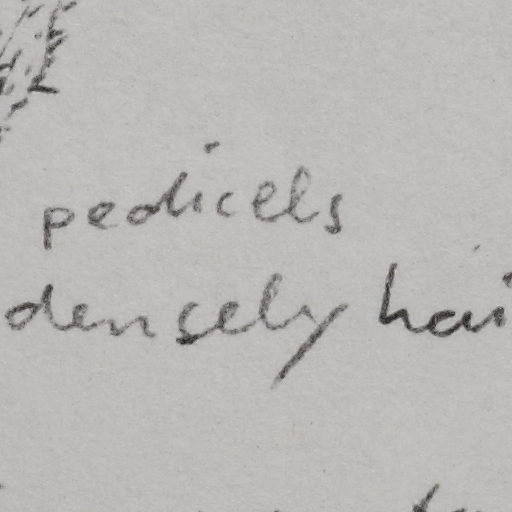 pedicels
densely hai